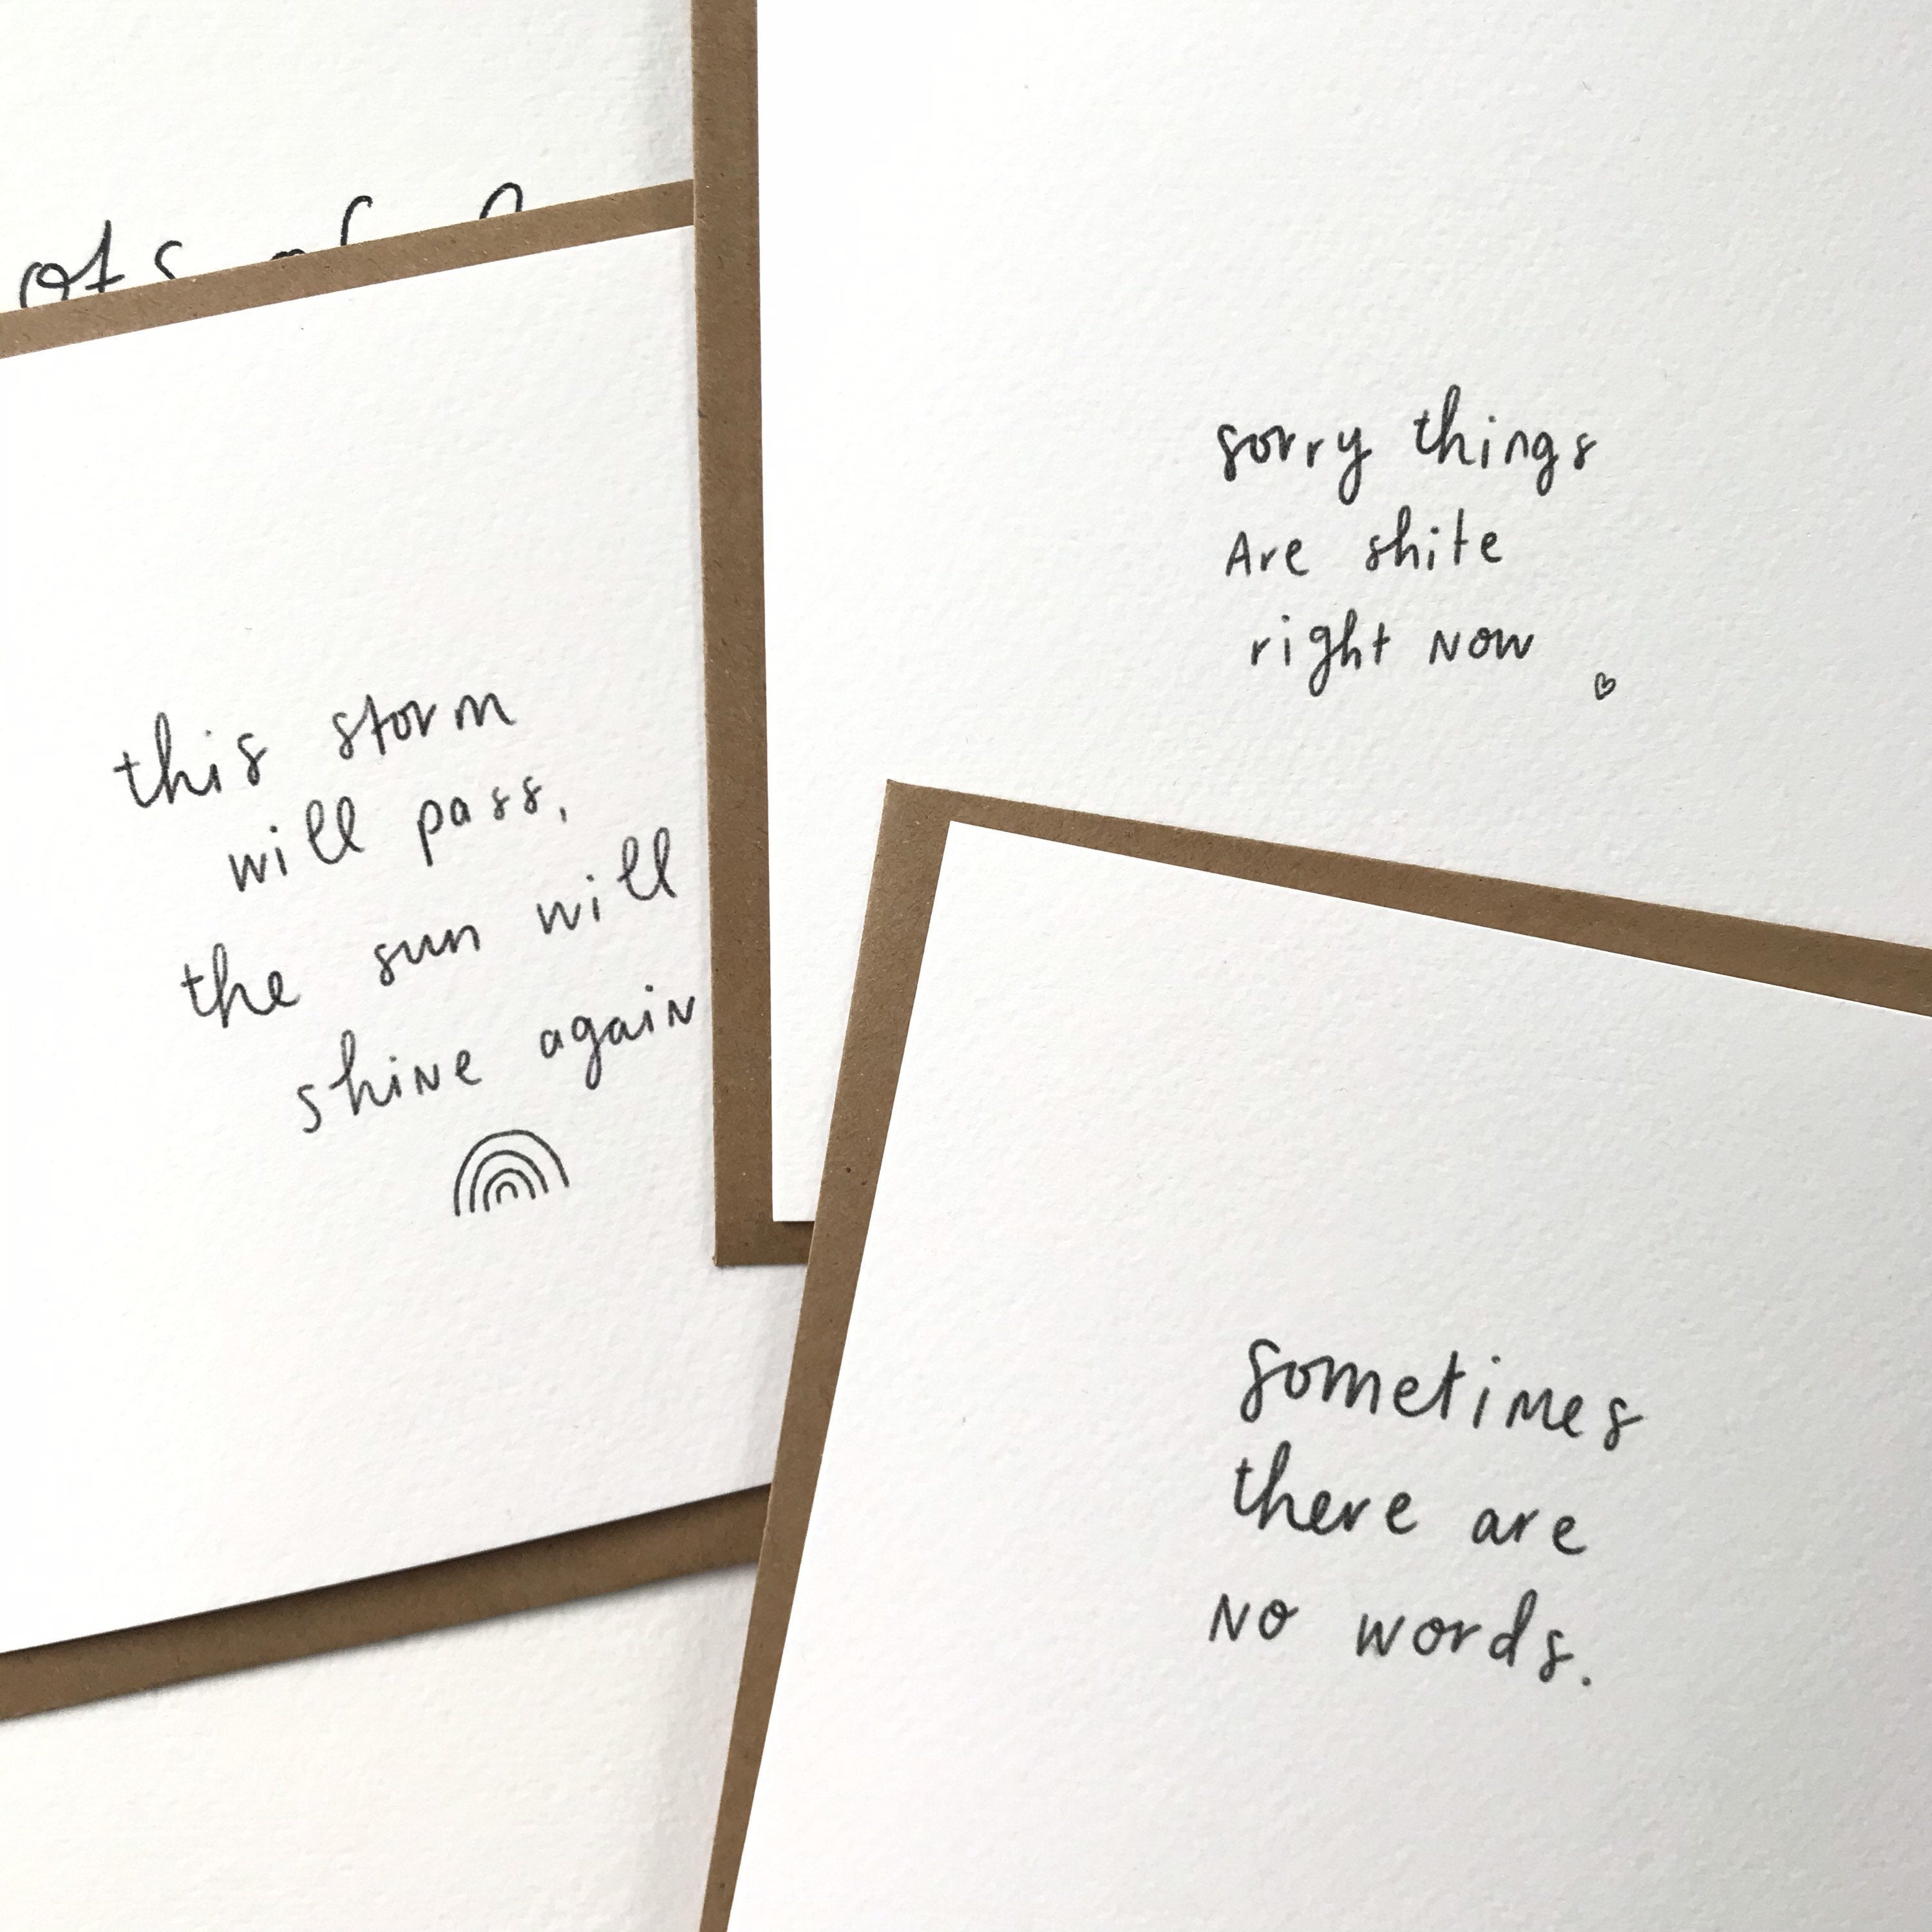 this storm
will pass,
the sun will
shine again
sorry things
Are shite
right now
sometimes
there are
no words.